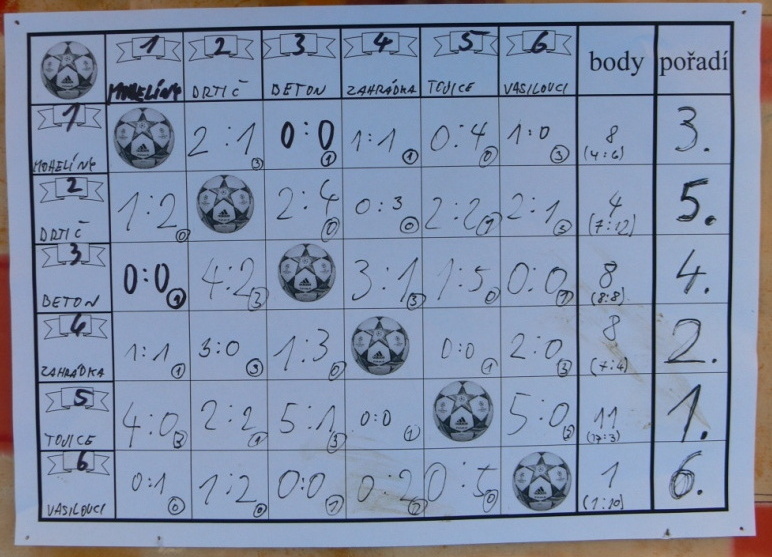 1 2 3 4 5 6 body pořadí
MOHELÍNY DRTIČ BETON ZAHRÁDKA TOJICE VASILOUCI
1 MOHELÍNY 2:1 3 0:0 1 1:1 1 0:4 0 1:0 3 8 (4:6) 3.
2 DRTIČ 1:2 0 2:4 0 0:3 0 2:2 1 2:1 3 4 (7:12) 5.
3 BETON 0:0 1 4:2 3 3:1 3 1:5 0 0:0 1 8 (8:8) 4.
4 ZAHRÁDKA 1:1 1 3:0 3 1:3 0 0:0 1 2:0 3 8 (7:4) 2.
5 TOJICE 4:0 3 2:2 1 5:1 3 0:0 1 5:0 3 11 (17:3) 1.
6 VASILOUCI 0:1 0 1:2 0 0:0 1 0:2 0:5 0 1 (1:10) 6.